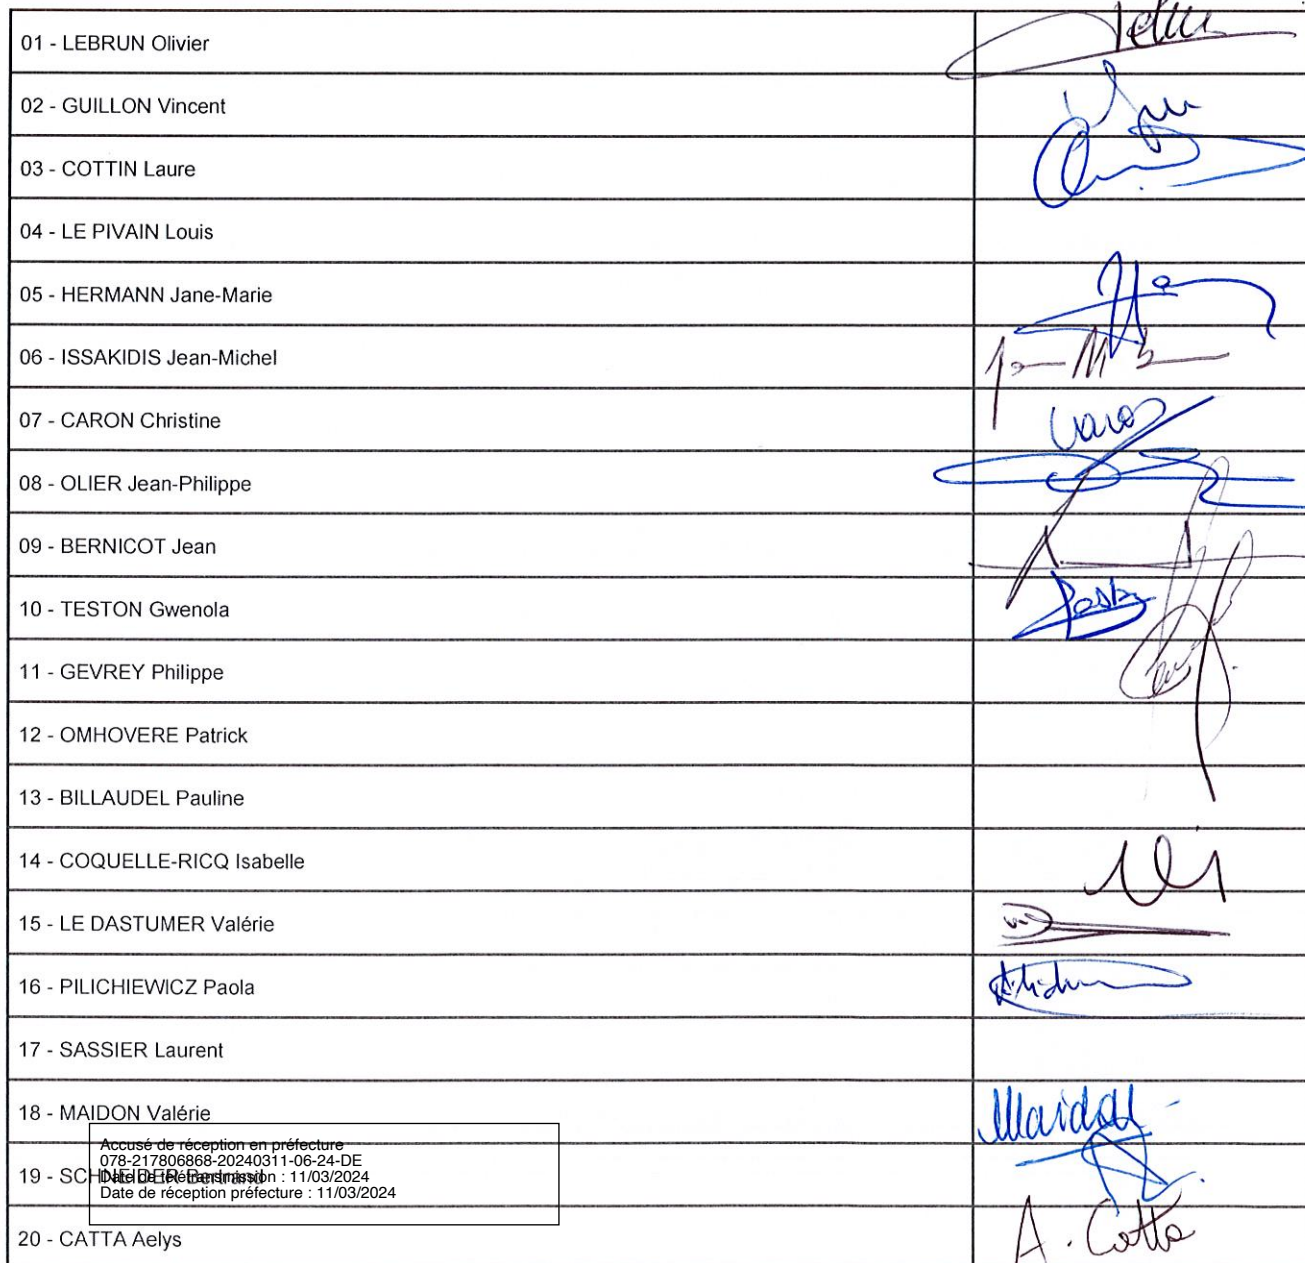 01 - LEBRUN Olivier
02 - GUILLON Vincent
03 - COTTIN Laure
04 - LE PIVAIN Louis
05 - HERMANN Jane-Marie
06 - ISSAKIDIS Jean-Michel
07 - CARON Christine
08 - OLIER Jean-Philippe
09 - BERNICOT Jean
10 - TESTON Gwenola
11 - GEVREY Philippe
12 - OMHOVERE Patrick
13 - BILLAUDEL Pauline
14 - COQUELLE-RICQ Isabelle
15 - LE DASTUMER Valérie
16 - PILICHIEWICZ Paola
17 - SASSIER Laurent
18 - MAIDON Valérie
Maidon
Accusé de réception en préfecture
078-217806868-20240311-06-24-DE
19 - SCHNEIDER Bertrand
Date de télétransmission : 11/03/2024
Date de réception préfecture : 11/03/2024
20 - CATTA Aelys
A. Catta